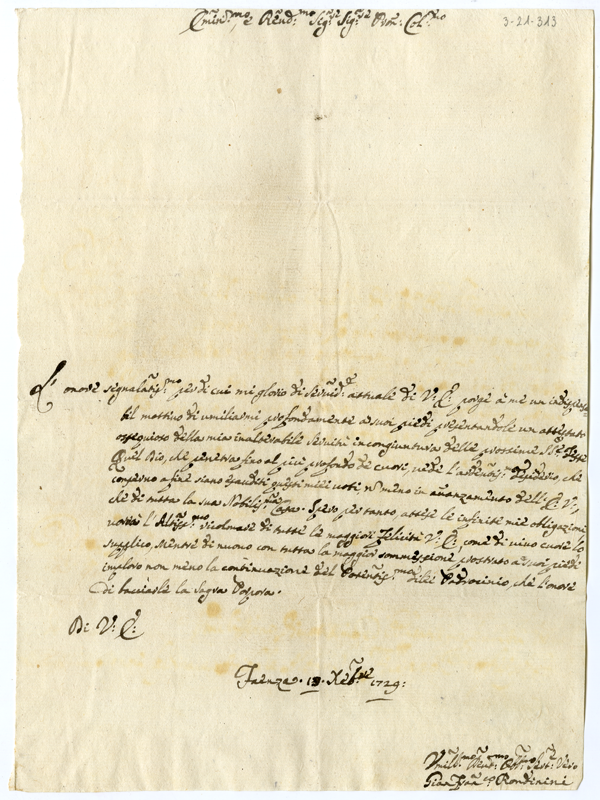 Emin.mo e Rēnd.mo Sig.re Sig.re Pron: Col.mo
3-21-313
L'onore segnalatis.mo per di cui mi glorio di Servid.e attuale di V: E: porge à me un indispensa
bil mottivo di umiliarmi profondamente a suoi piedi presentandole un attestato
ossequioso della mia inalterabile Servitù in congiuntura delle prossime S.te Feste
Quel Dio, che penetra sino al più profondo de cuori, vede l'ardentis.mo Desiderio, che
conservo affine siano esauditi questi miei voti, non meno in avanzamento dell' E: V:,
che di tutta la sua Nobilis.ma Casa. Spero per tanto attese le infinite mie obligazioni
vorrà l'Altiss.mo ricolmare di tutte le maggiori Felicità V: E:, come di vivo cuore lo
supplico, mentre di nuovo con tutta la maggior sommessione prostrato a suoi piedi
imploro non meno la continuazione del Potentis.mo di lei Padrocinio, che l'onore
di bacciarle la Sagra Porpora.
Di V: E:
Faenza. 13. Xēbre 1729:
Vmilis.mo Rēnd.mo Obb.mo Ser.re Vero
Gian Fran.co Rondinini